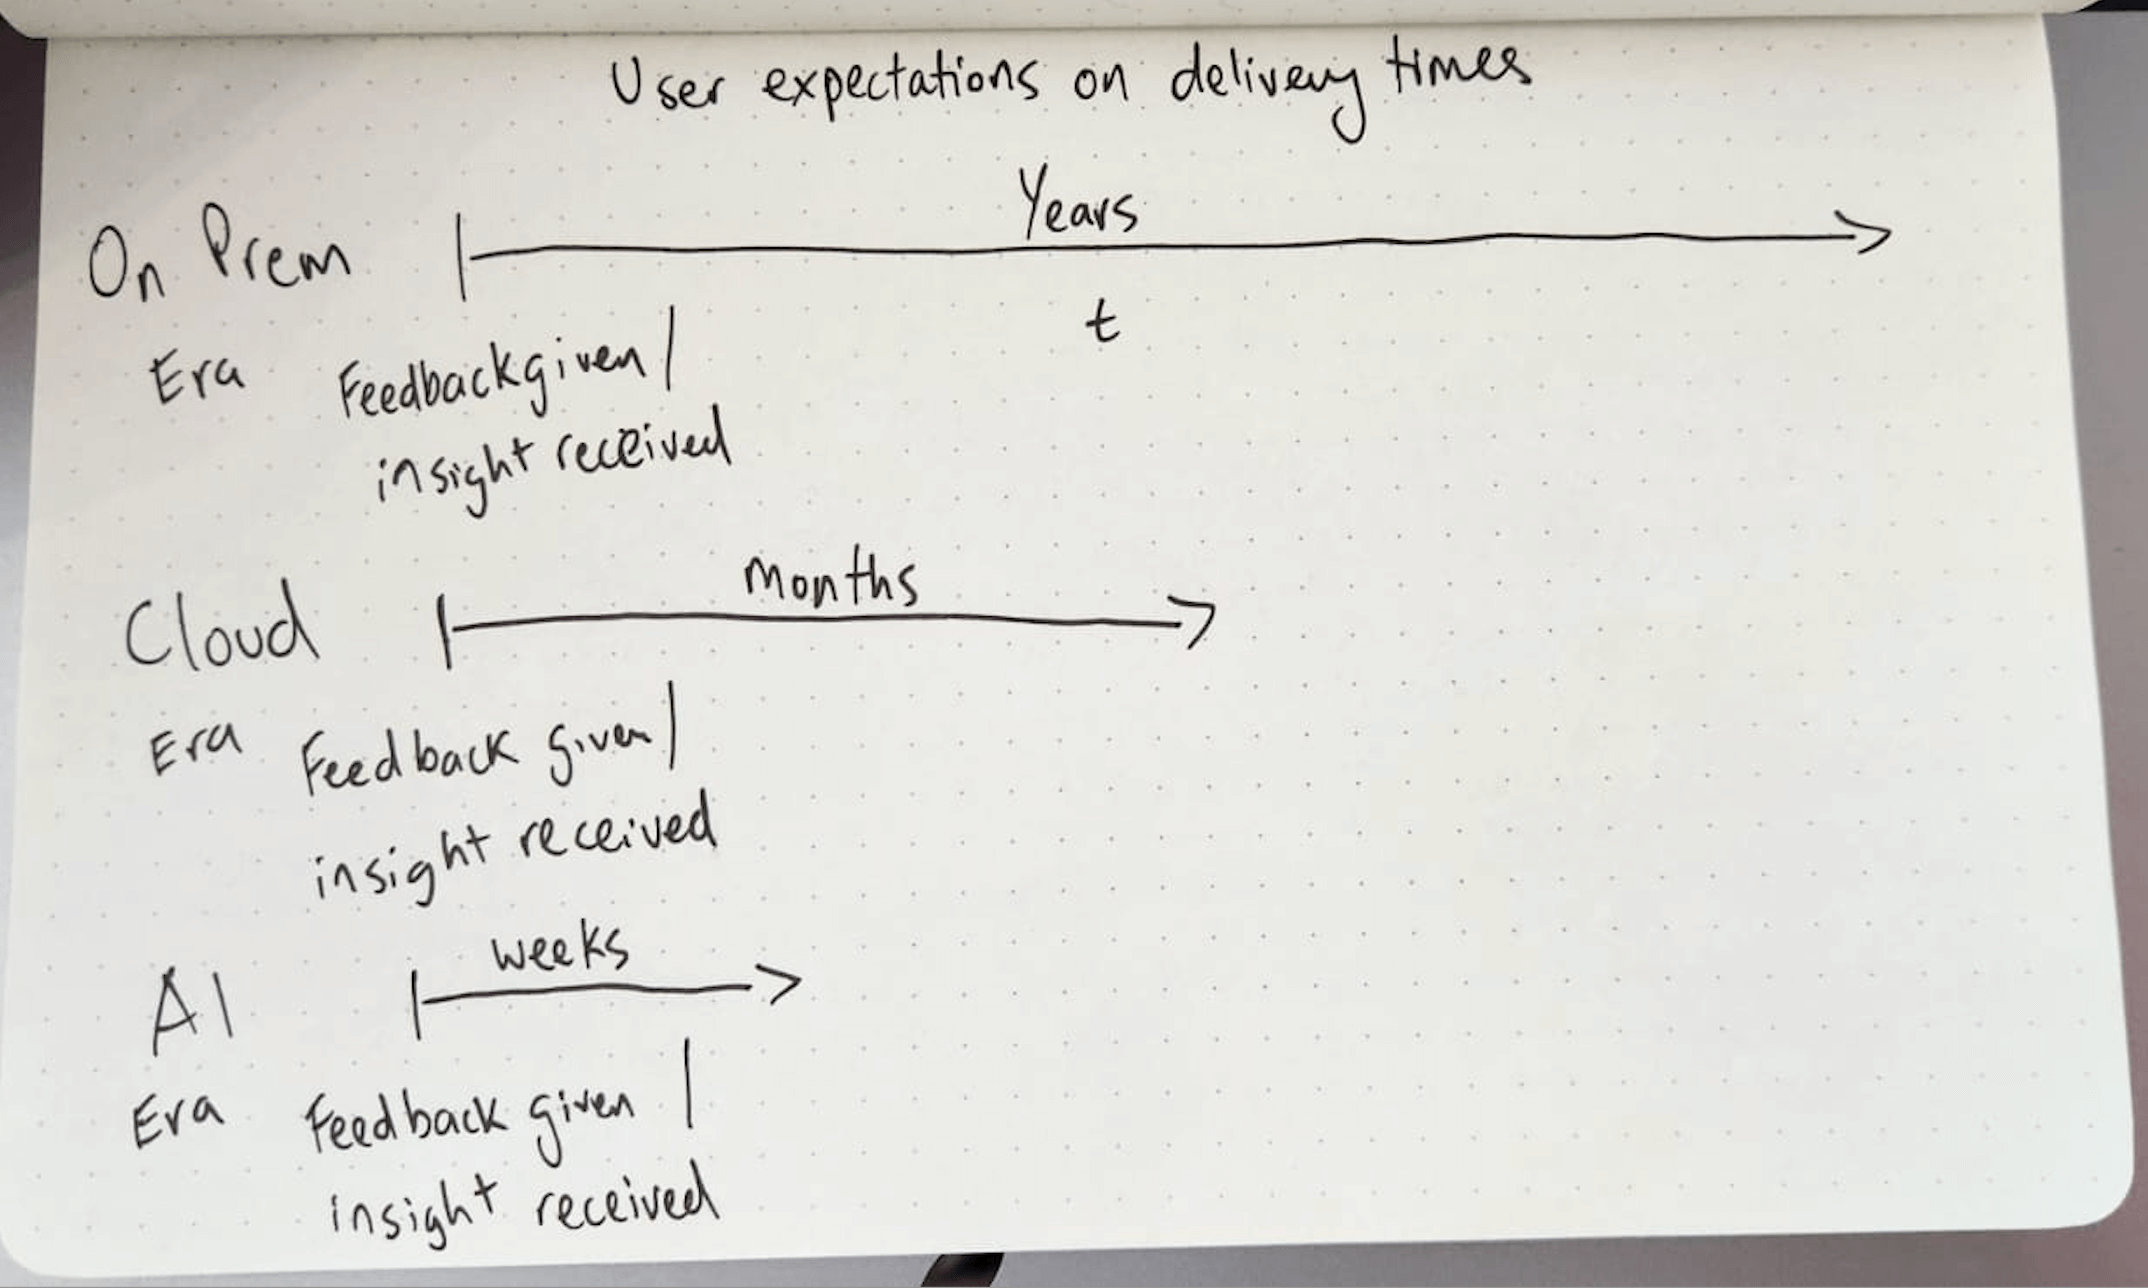 User expectations on delivery times
Years
On Prem
t
Era
Feedback given /
insight received
Months
Cloud
Era
Feedback given /
insight received
weeks
AI
Era
Feedback given /
insight received